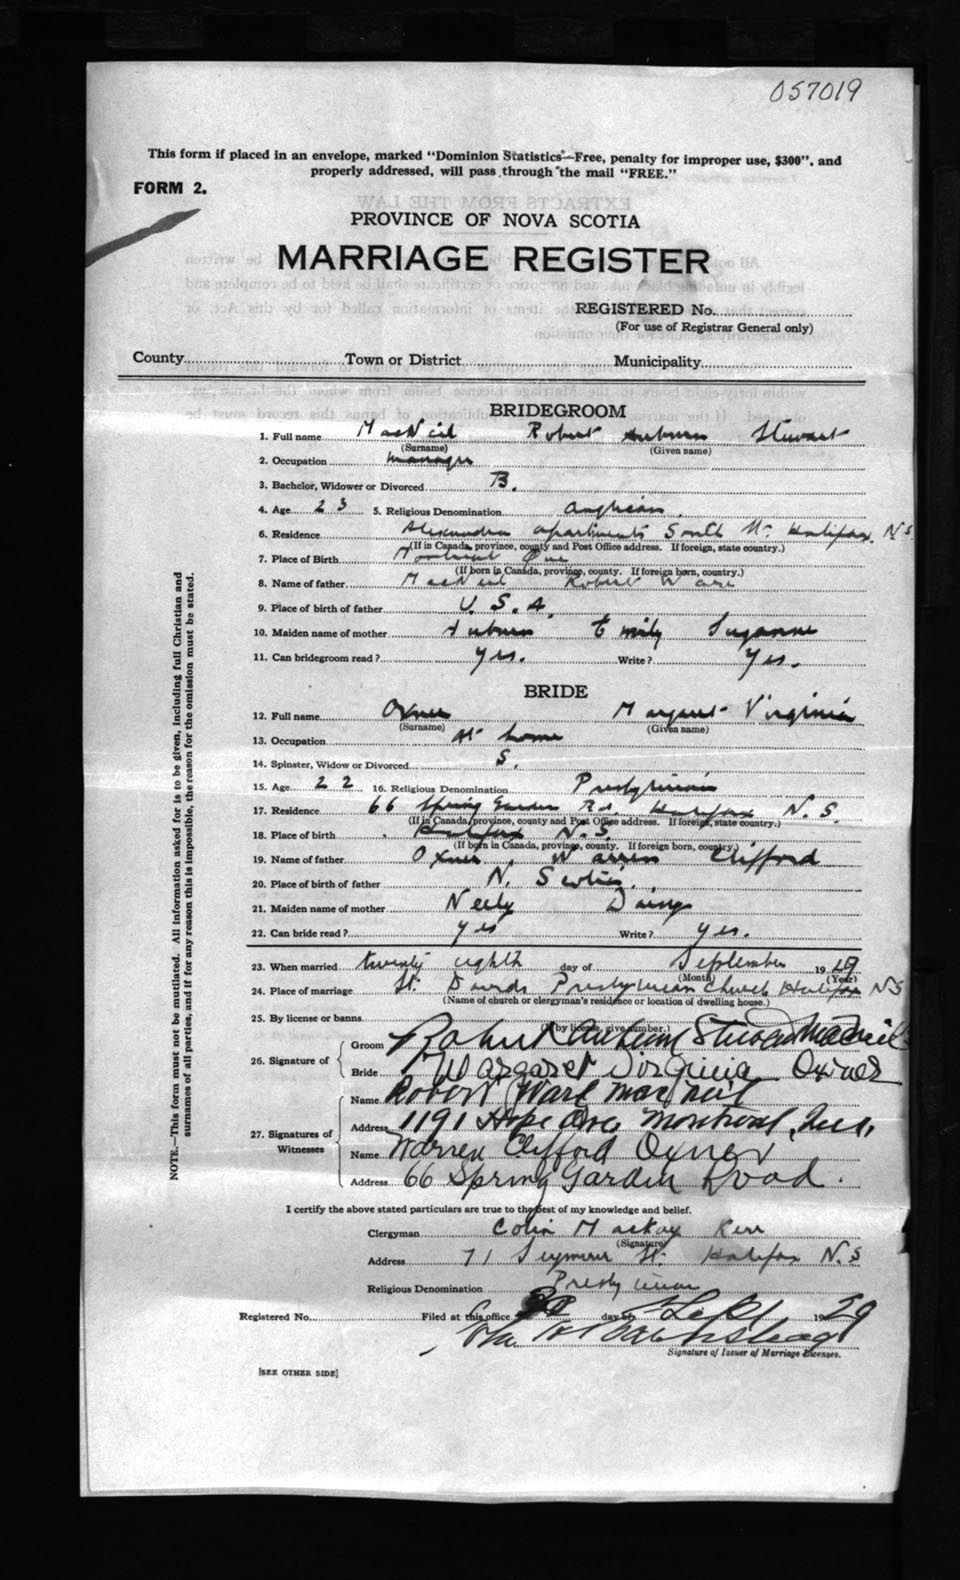 057019
This form if placed in an envelope, marked "Dominion Statistics—Free, penalty for improper use, $300", and
properly addressed, will pass through the mail "FREE."
FORM 2.
PROVINCE OF NOVA SCOTIA
MARRIAGE REGISTER
REGISTERED No.
(For use of Registrar General only)
County Town or District Municipality
BRIDEGROOM
1. Full name MacNeil Robert Auburn Stewart
(Surname) (Given name)
2. Occupation Manager
3. Bachelor, Widower or Divorced B.
4. Age 23 5. Religious Denomination Anglican
6. Residence Alexandra Apartments South St. Halifax, N.S.
(If in Canada, province, county and Post Office address. If foreign, state country.)
7. Place of Birth Montreal Que
(If born in Canada, province, county. If foreign born, country.)
8. Name of father MacNeil Robert Ware
9. Place of birth of father U.S.A.
10. Maiden name of mother Auburn Emily Suzanne
11. Can bridegroom read? Yes. Write? Yes.
BRIDE
12. Full name Oxner Margaret Virginia
(Surname) (Given name)
13. Occupation At home
14. Spinster, Widow or Divorced S.
15. Age 22 16. Religious Denomination Presbyterian
17. Residence 66 Spring Garden Rd. Halifax N.S.
(If in Canada, province, county and Post Office address. If foreign, state country.)
18. Place of birth Halifax N.S.
(If born in Canada, province, county. If foreign born, country.)
19. Name of father Oxner, Warren Clifford
20. Place of birth of father N. Scotia.
21. Maiden name of mother Neily Daisy
22. Can bride read? Yes Write? Yes.
23. When married twenty eighth day of September 1929
(Month) (Year)
24. Place of marriage St. Davids Presbyterian Church Halifax NS
(Name of church or clergyman's residence or location of dwelling house.)
25. By license or banns
(If by license, give number.)
26. Signature of
Groom Robert Auburn Stewart MacNeil
Bride Margaret Virginia Oxner
27. Signatures of Witnesses
Name Robert Ware MacNeil
Address 1191 Hope Ave Montreal, Que.
Name Warren Clifford Oxner
Address 66 Spring Garden Road.
I certify the above stated particulars are true to the best of my knowledge and belief.
Clergyman Colin MacKay Kerr
(Signature)
Address 71 Seymour St. Halifax N.S
Religious Denomination Presbyterian
Registered No. Filed at this office day of Sept 1929
Signature of Issuer of Marriage Licenses.
[SEE OTHER SIDE]
NOTE.—This form must not be mutilated. All information asked for is to be given, including full Christian and
surnames of all parties, and if for any reason this is impossible, the reason for the omission must be stated.